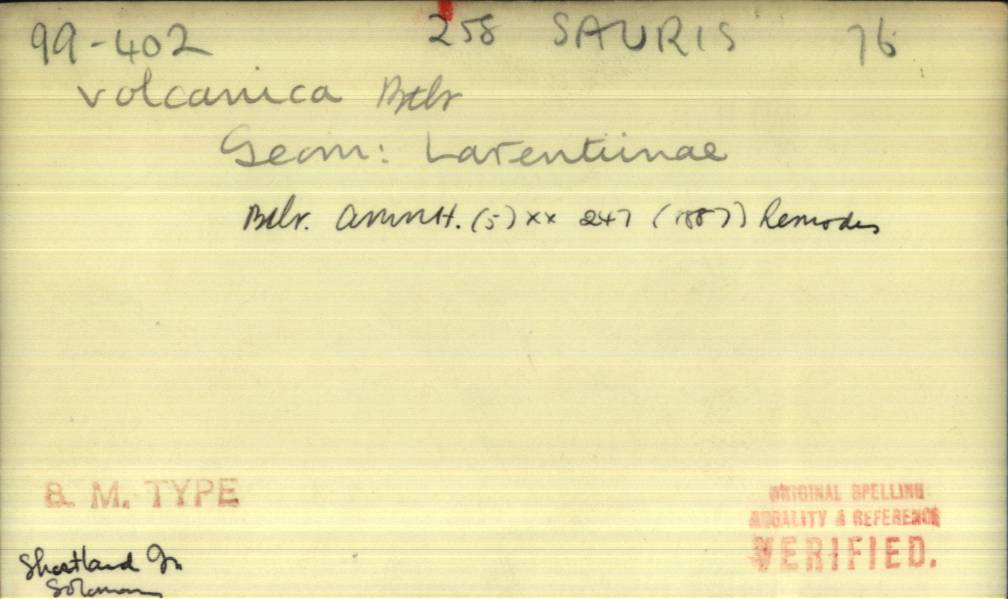 99-402 258 SAURIS 76
volcanica Btlr
Geom: Larentiinae
Btlr. AMNH. (5) xx 247 (1887) Remodes
B. M. TYPE
ORIGINAL SPELLING
LOCALITY & REFERENCE
VERIFIED.
Shortland Is
Solomons